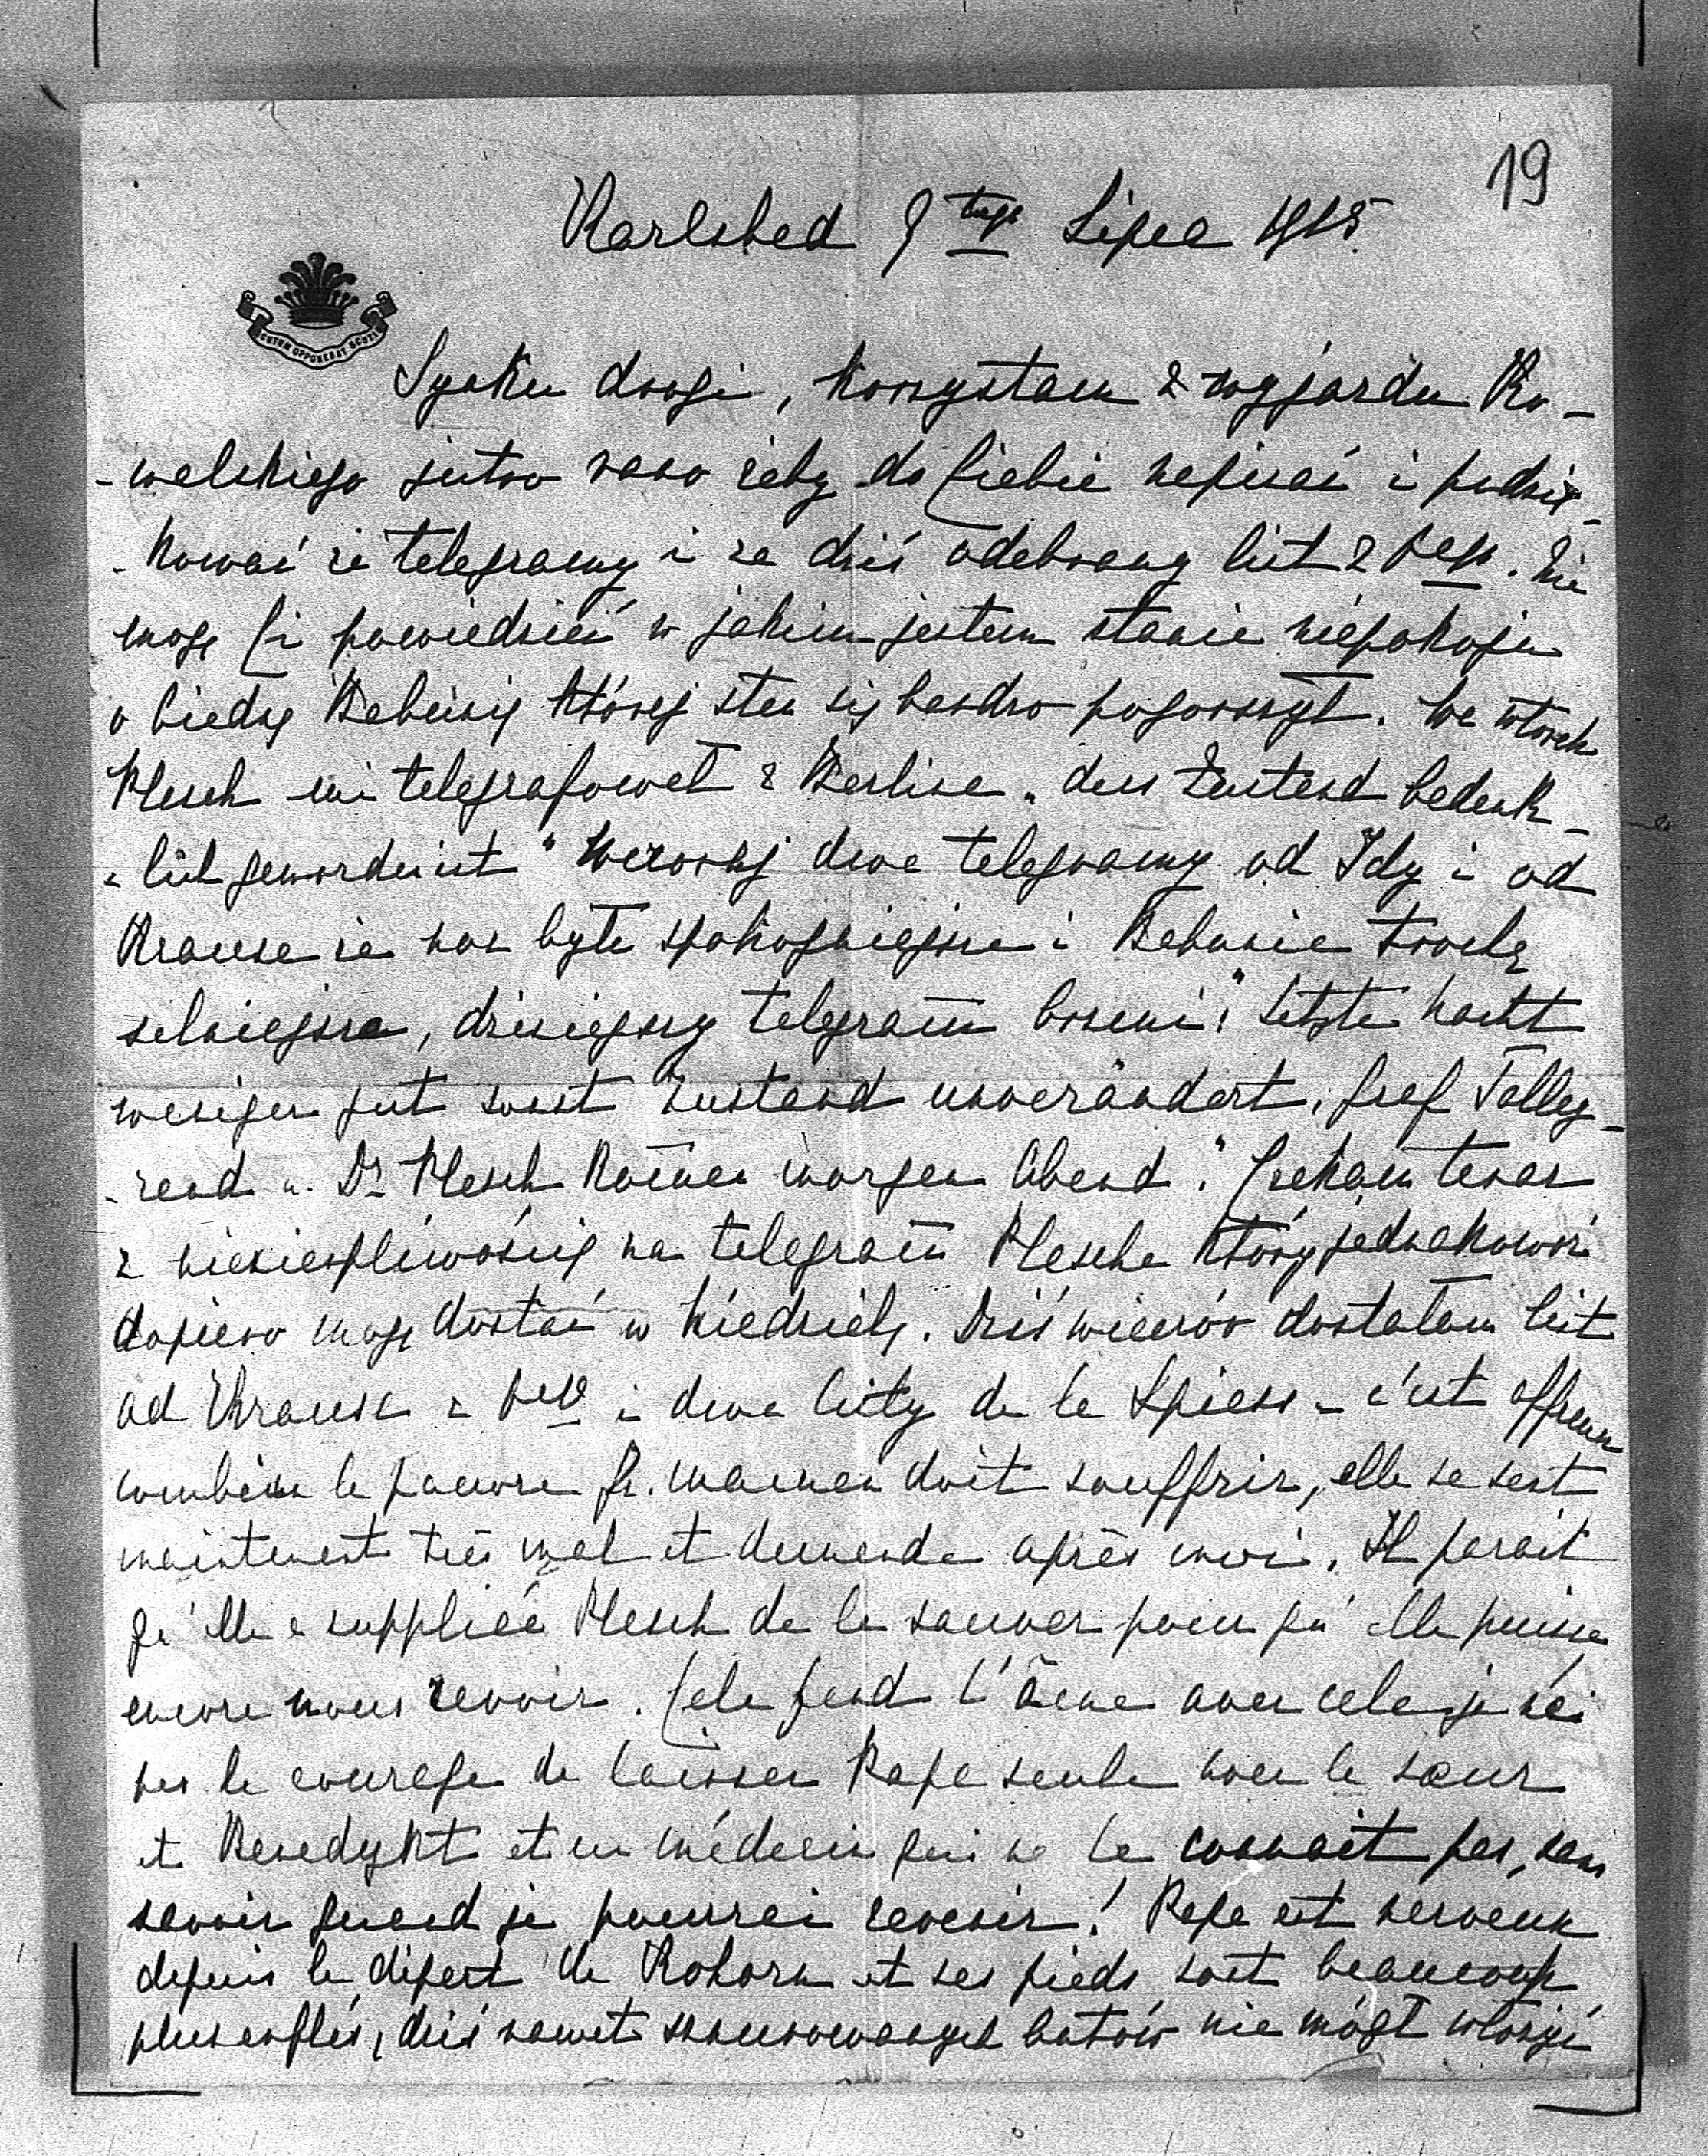 19
Karlsbad 9tego Lipca 1915
SCUTUM OPPONEBAT SCUTIS
Synku drogi, korzystam z wyjazdu Ko-
-walskiego jutro rano żeby do Ciebie napisać i podzię-
-kować za telegramy i za dziś odebrany list z 5ego. Nie
mogę Ci powiedzieć w jakim jestem stanie niepokoju
o biedną Babunię której stan się bardzo pogorszył. We wtorek
Plesch mi telegrafował z Berlina „das Zustand bedenk-
-lich geworden ist" Wczoraj dwa telegramy od Idy i od
Krause że noc była spokojniejsza i Babunia trochę
silniejsza, dzisiejszy telegram brzmi: "Letzte Nacht
weniger gut sonst Zustand unverändert, Graf Talley-
-rand u. Dr Plesch kom̄en morgen Abend." Czekam teraz
z niecierpliwością na telegram Plescha który jednakowoż
dopiero mogę dostać w Niedzielę. Dziś wieczór dostałam list
od Krause z i dwa listy de la Spiess – c'est affreux
combien la pauvre Gr. maman doit souffrir, elle se sent
maintenant très mal et demande après moi. Il parait
qu'elle a suppliée Plesch de la sauver pour qu'elle puisse
encore nous revoir. Cela fend l'âme avec cela je n'ai
pas le courage de laisser Papa seule avec la sœur
et Benedykt et un médecin qui ne le connait pas, sans
savoir quand je pourrai revenir! Papa est nerveux
depuis le départ de Kohorn et ses pieds sont beaucoup
plus enflés, dziś nawet sznurowanych butów nie mógł włożyć